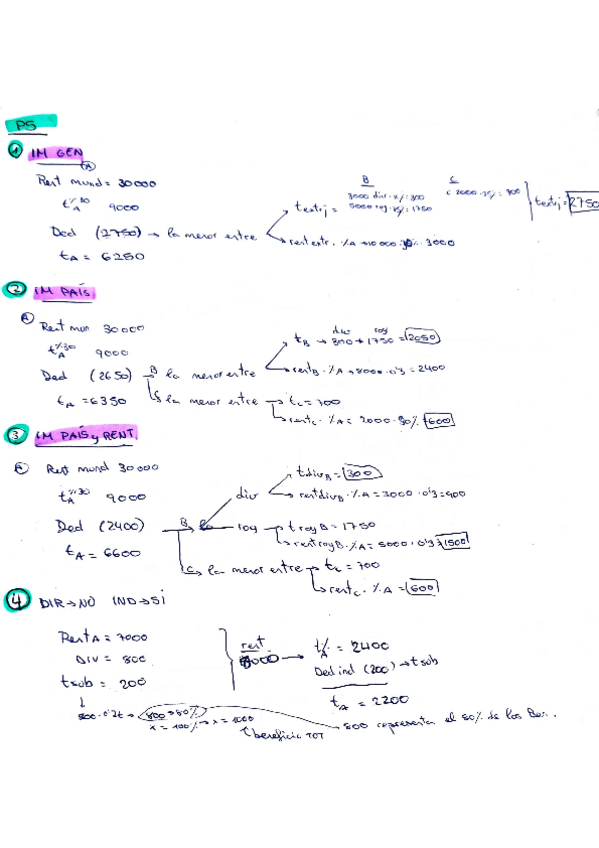 P5
① IM GEN
A
Rent mund = 30000
t/A 30 9000
Ded (2750) → la menor entre
tA = 6250
textrj =
B
3000 div · % = 300
5000 roy · 35% = 1750
C
textrj = 2750
rentextr. · %A → 10000 · 30% = 3000
② IM PAÍS
A
Rent mun 30000
t%30 A 9000
Ded (2650) B la menor entre
tA = 6350
la menor entre → tc = 700
div roy
tB → 300 + 1750 = 2050
rentB · %A → 8000 · 0'3 = 2400
rentc · %A = 2000 · 30% = 600
③ IM PAÍS y RENT
A Rent mund 30000
t%30 A 9000
Ded (2400)
tA = 6600
B
div
tdivB = 300
rentdivB · %A = 3000 · 0'3 = 900
roy → troyB = 1750
rentroyB · %A = 5000 · 0'3 = 1500
C la menor entre → tc = 700
rentc · %A = 600
④ DIR → NO IND → SÍ
RentA = 7000
DIV = 800
tsob = 200
rent
8000 → t/A = 2400
Ded ind (200) → tsob
tA = 2200
800 → 80%
x = 100% → x = 1000
beneficio TOT
800 representa el 80% de los Ben.